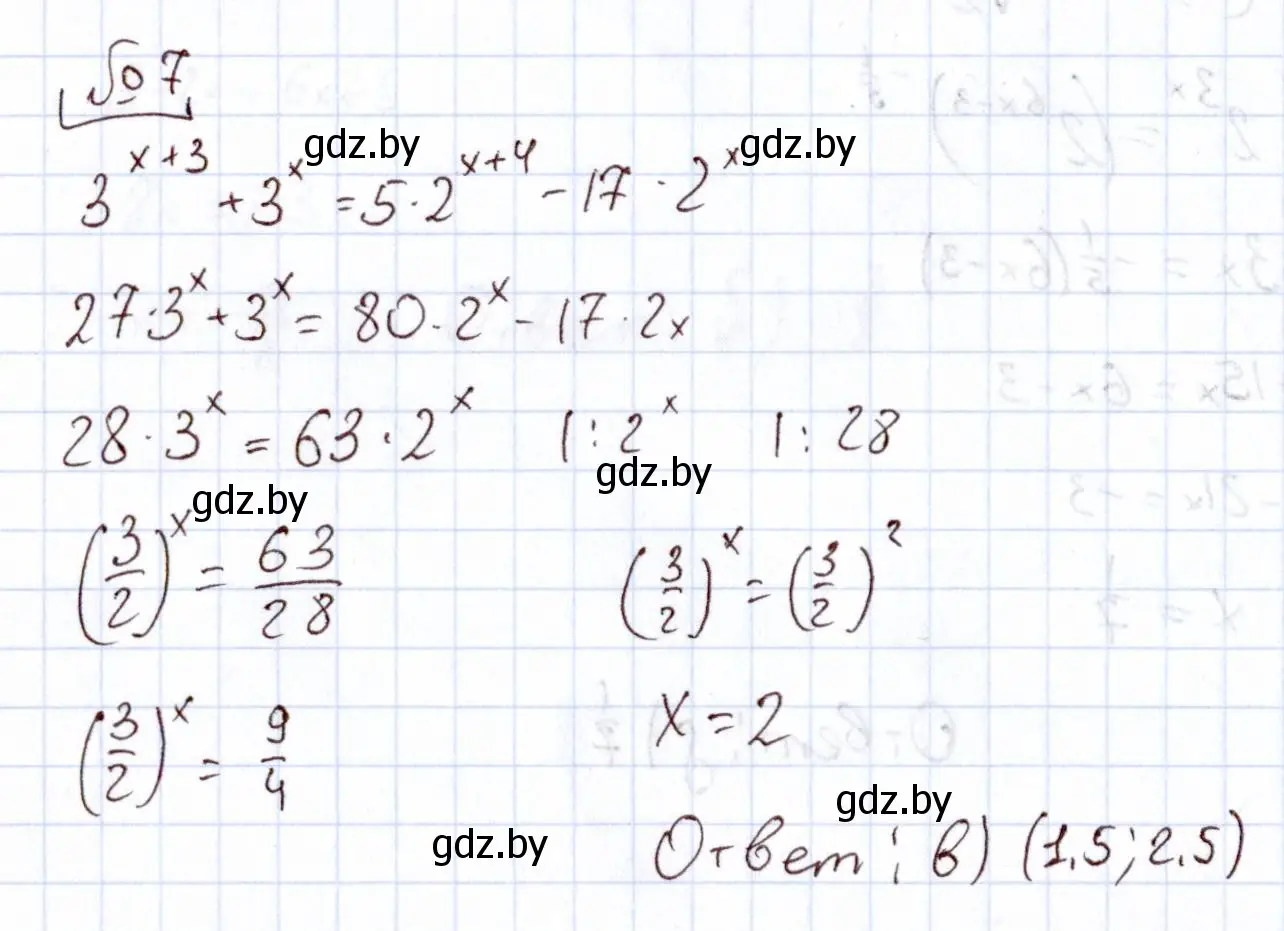 № 7
3^(x+3) + 3^x = 5·2^(x+4) - 17·2^x
gdz.by gdz.by
27·3^x + 3^x = 80·2^x - 17·2x
28·3^x = 63·2^x |:2^x |:28
gdz.by gdz.by
(3/2)^x = 63/28 (3/2)^x = (3/2)^2
(3/2)^x = 9/4 x = 2
gdz.by gdz.by
Ответ: в) (1,5; 2,5)